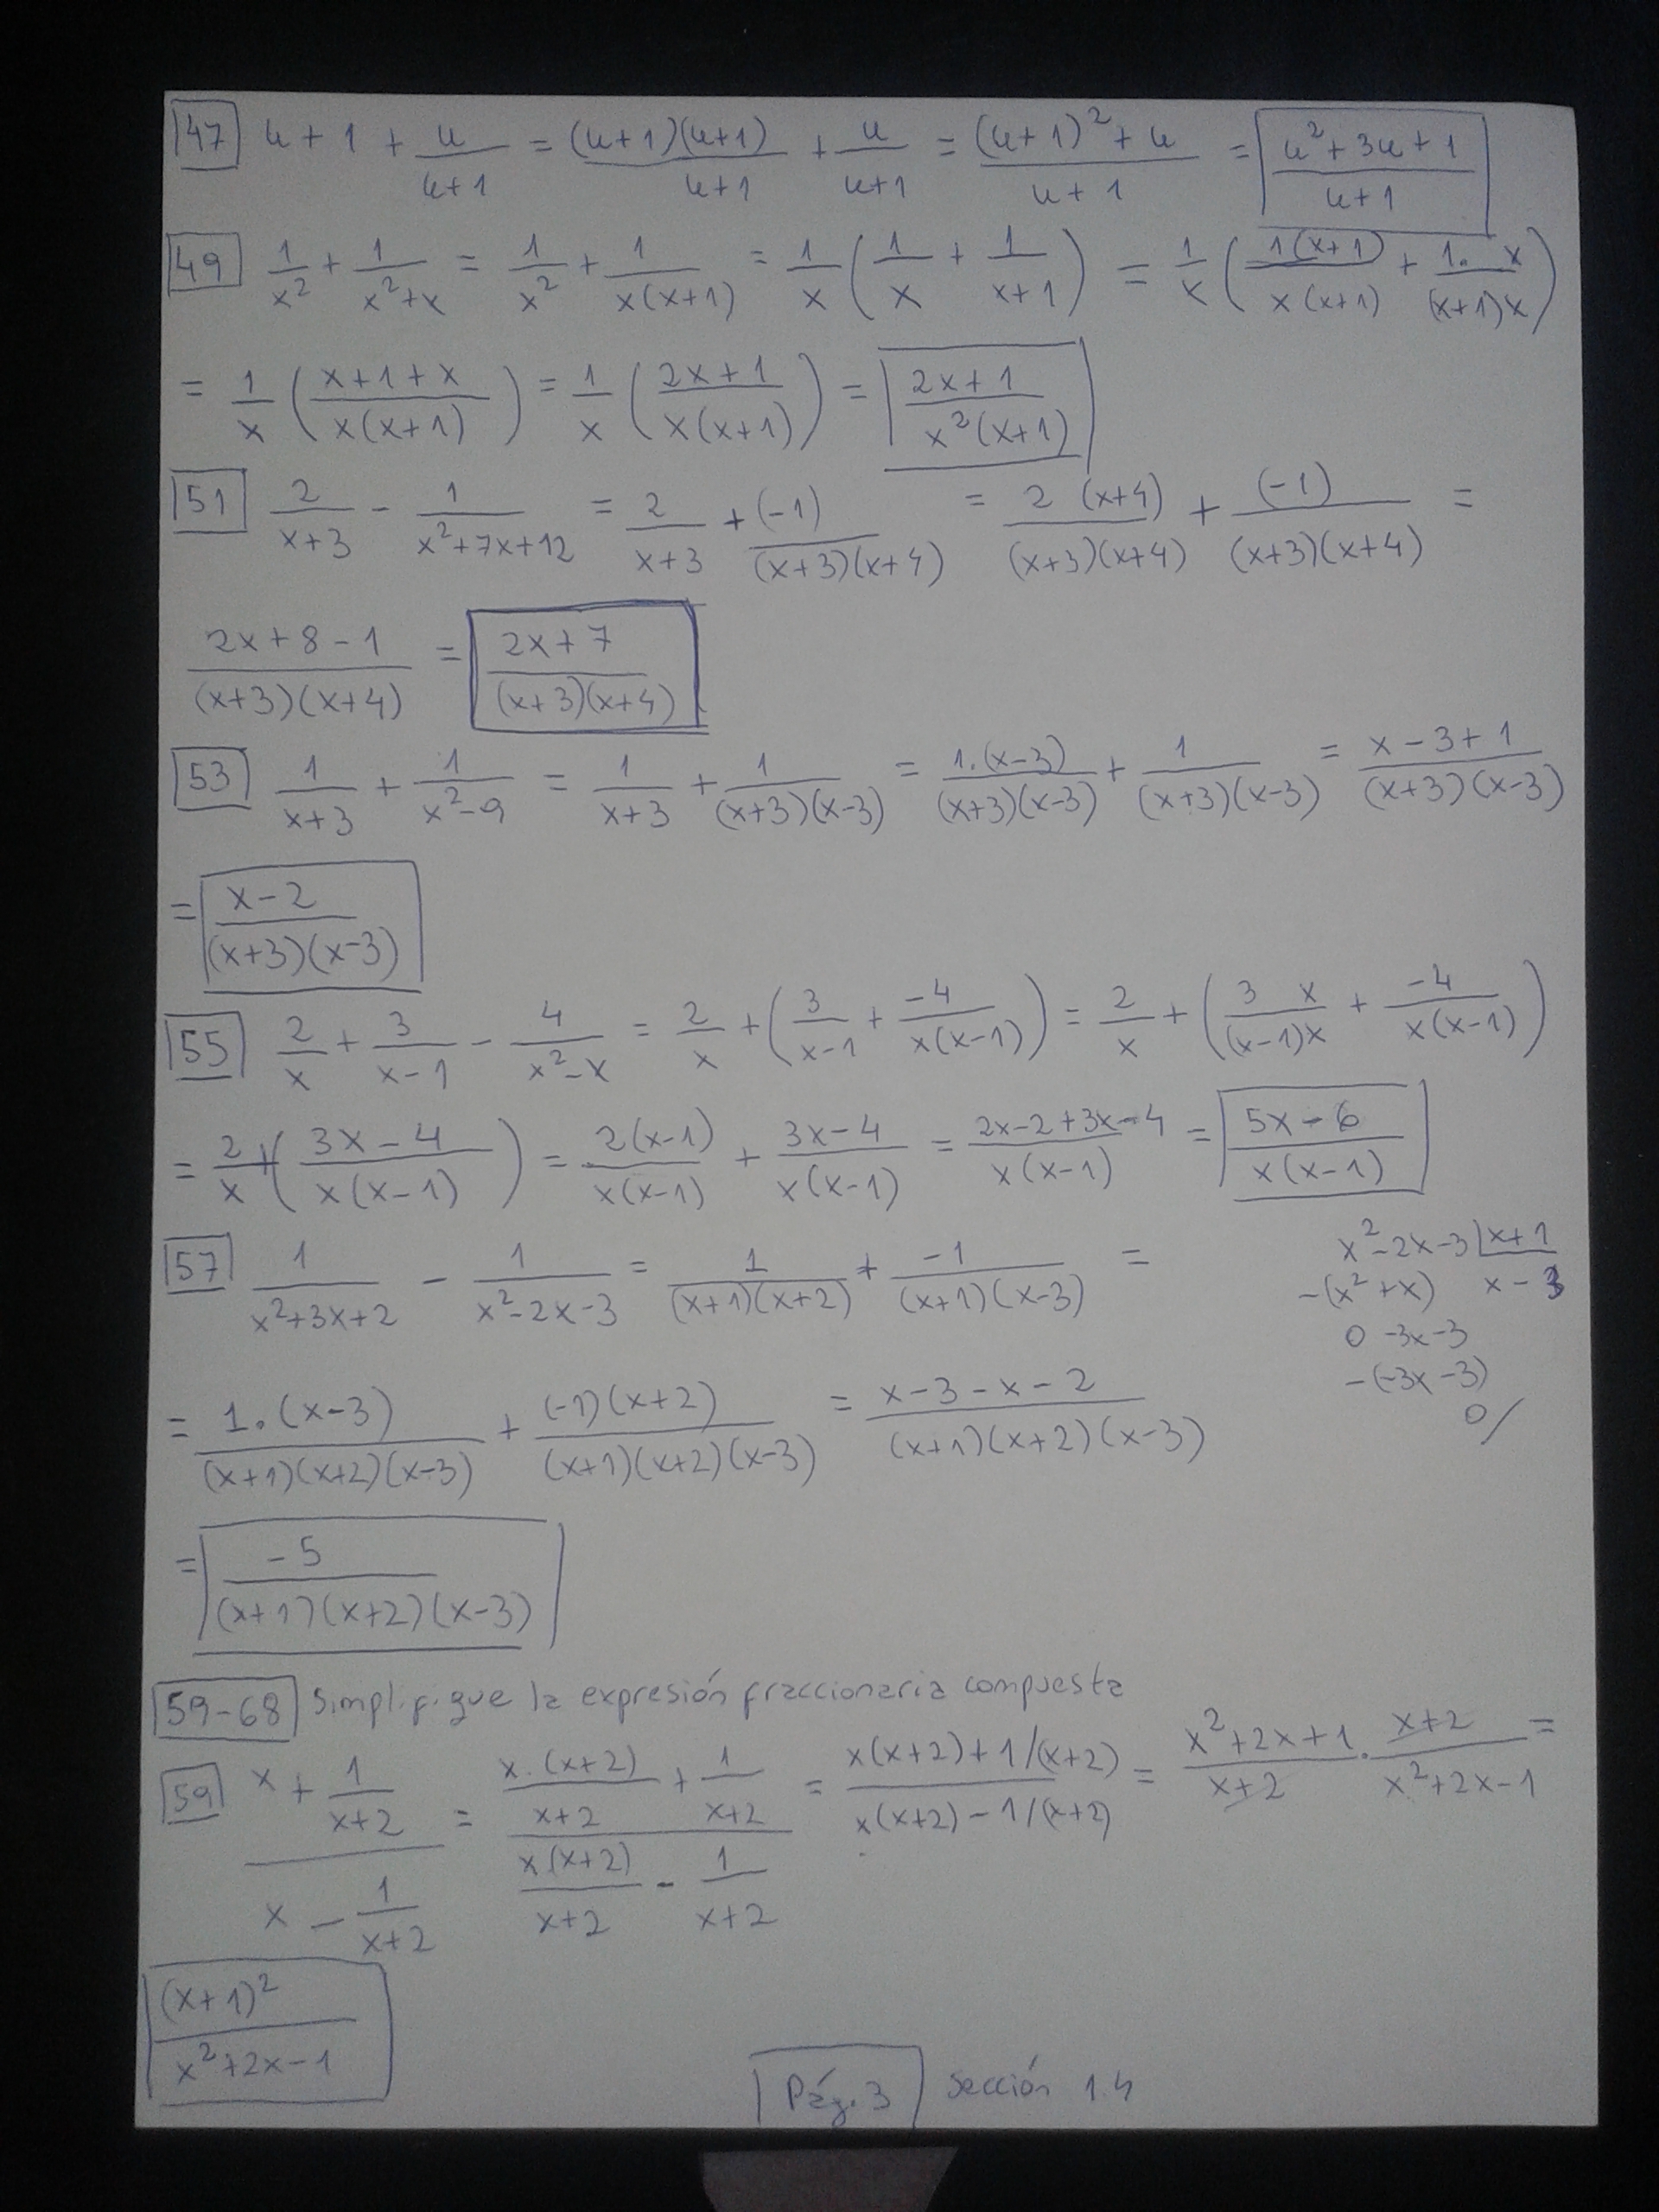 47 u + 1 + u/(u+1) = (u+1)(u+1)/(u+1) + u/(u+1) = ((u+1)² + u)/(u+1) = (u²+3u+1)/(u+1)
49 1/x² + 1/(x²+x) = 1/x² + 1/(x(x+1)) = 1/x (1/x + 1/(x+1)) = 1/x (1(x+1)/(x(x+1)) + 1·x/((x+1)x))
= 1/x ((x+1+x)/(x(x+1))) = 1/x ((2x+1)/(x(x+1))) = (2x+1)/(x²(x+1))
51 2/(x+3) - 1/(x²+7x+12) = 2/(x+3) + (-1)/((x+3)(x+4)) = 2 (x+4)/((x+3)(x+4)) + (-1)/((x+3)(x+4)) =
(2x+8-1)/((x+3)(x+4)) = (2x+7)/((x+3)(x+4))
53 1/(x+3) + 1/(x²-9) = 1/(x+3) + 1/((x+3)(x-3)) = 1·(x-3)/((x+3)(x-3)) + 1/((x+3)(x-3)) = (x-3+1)/((x+3)(x-3))
= (x-2)/((x+3)(x-3))
55 2/x + 3/(x-1) - 4/(x²-x) = 2/x + (3/(x-1) + -4/(x(x-1))) = 2/x + (3 x/((x-1)x) + -4/(x(x-1)))
= 2/x + ((3x-4)/(x(x-1))) = 2(x-1)/(x(x-1)) + (3x-4)/(x(x-1)) = (2x-2+3x-4)/(x(x-1)) = (5x-6)/(x(x-1))
57 1/(x²+3x+2) - 1/(x²-2x-3) = 1/((x+1)(x+2)) + -1/((x+1)(x-3)) =
x²-2x-3 | x+1
-(x²+x) x-3
0 -3x-3
-(-3x-3)
0/
= 1·(x-3)/((x+1)(x+2)(x-3)) + (-1)(x+2)/((x+1)(x+2)(x-3)) = (x-3-x-2)/((x+1)(x+2)(x-3))
= -5/((x+1)(x+2)(x-3))
59-68 Simplifique la expresión fraccionaria compuesta
59 (x + 1/(x+2))/(x - 1/(x+2)) = (x·(x+2)/(x+2) + 1/(x+2))/(x(x+2)/(x+2) - 1/(x+2)) = (x(x+2)+1/(x+2))/(x(x+2)-1/(x+2)) = (x²+2x+1)/(x+2) · (x+2)/(x²+2x-1) =
(x+1)²/(x²+2x-1)
Pág. 3 Sección 1.4